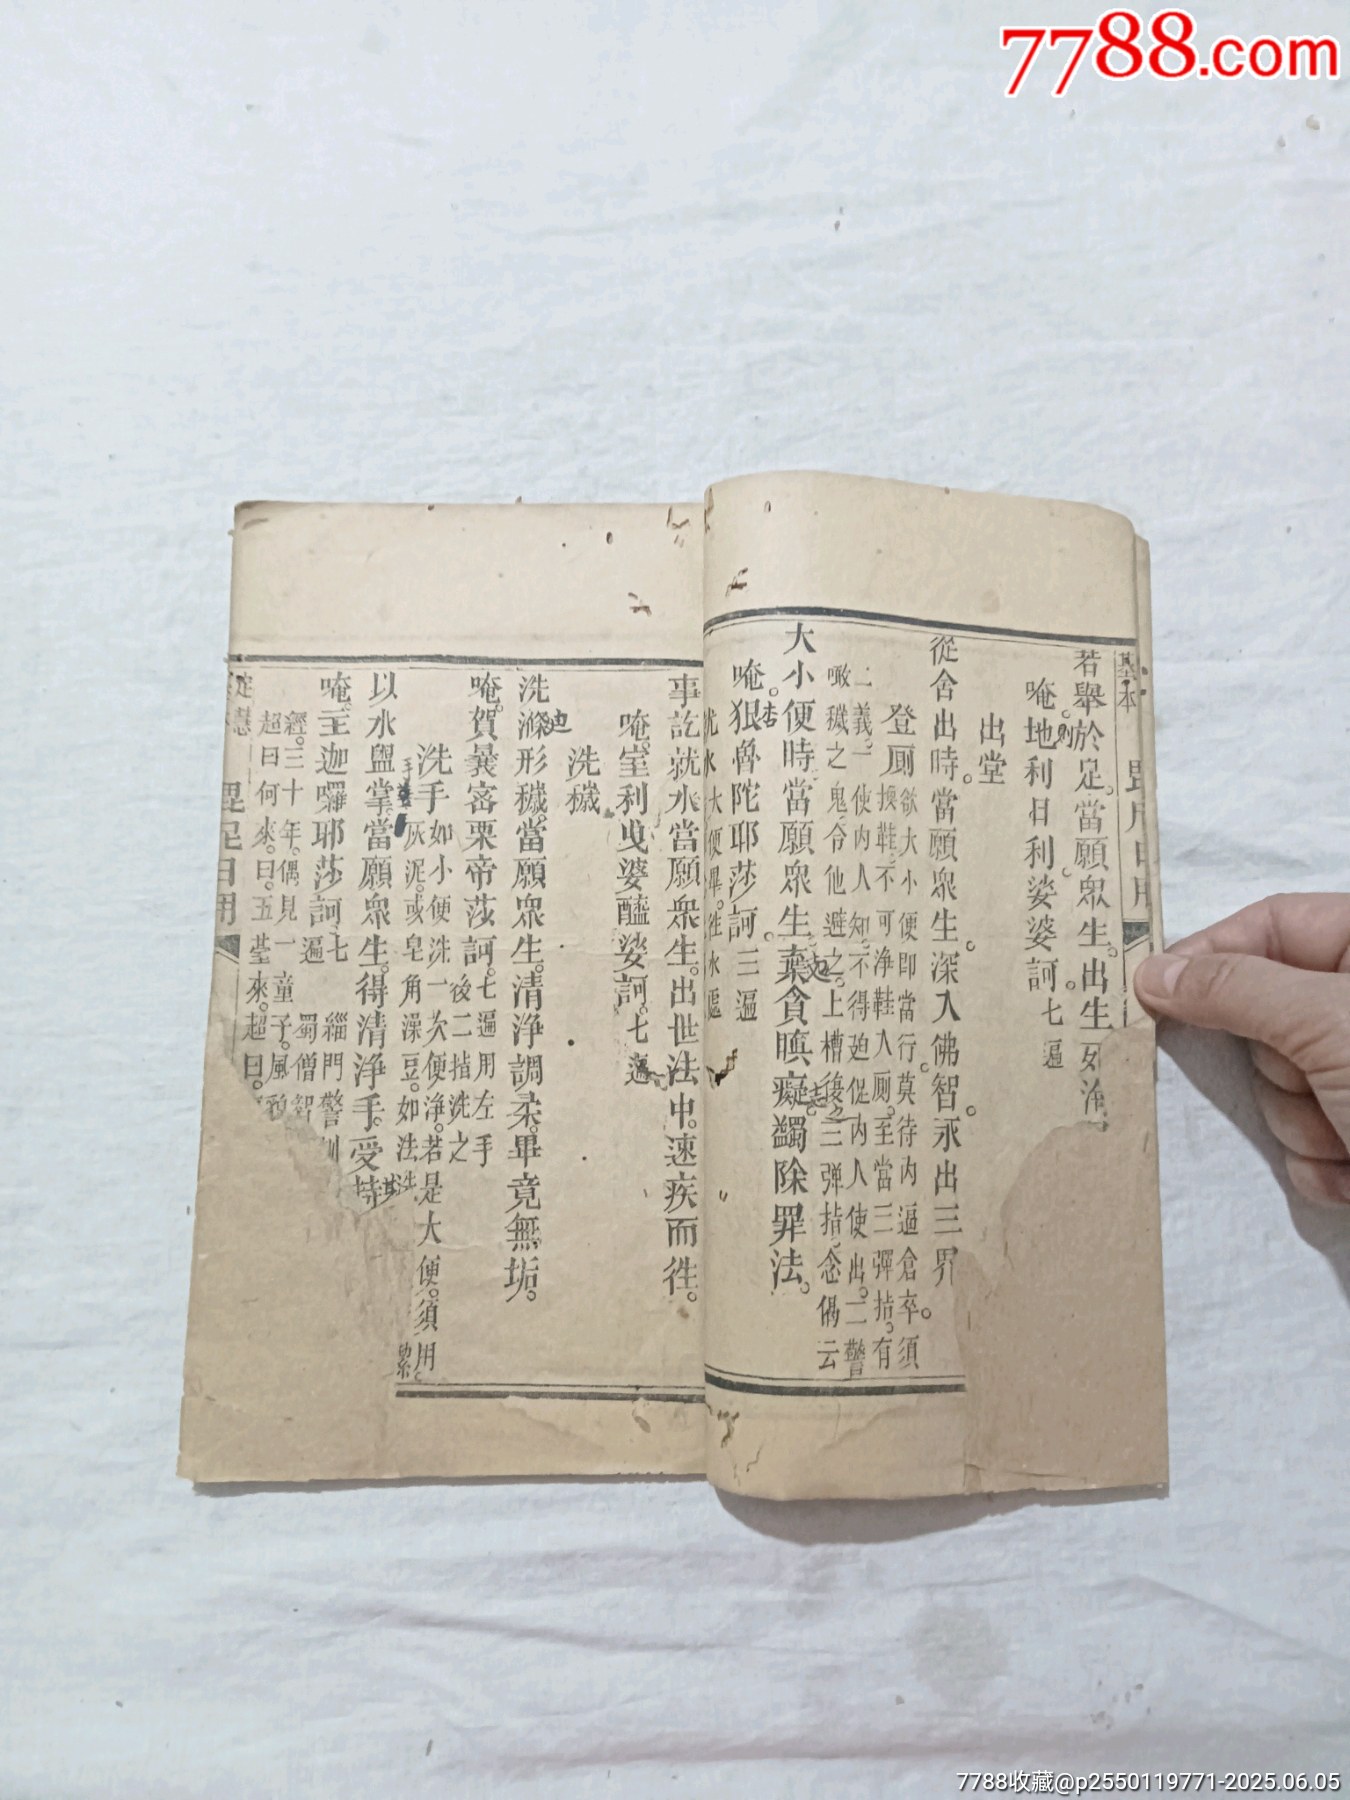 7788.com
基本
毘尼日用
若舉於足。當願眾生。出生
唵。地利日利。娑婆訶。七遍
出堂
從舍出時。當願眾生。深入佛智。永出三界
登厠欲大小便即當行。莫待內逼倉卒。須
換鞋。不可淨鞋入厠。至當三彈指。有
二義。一使內人知。不得迫促內人使出。二警
噉穢之鬼。令他避之。上槽後三彈指。念偈云
大小便時。當願眾生。棄貪瞋癡。蠲除罪法。
唵。狠魯陀耶莎訶。三遍
事訖就水。當願眾生。出世法中。速疾而往。
唵。室利曳婆醯娑訶。七遍
洗穢
洗滌形穢。當願眾生。清淨調柔。畢竟無垢。
唵。賀曩密栗帝莎訶。七遍用左手
後二指洗之
洗手如小便洗一次便淨。若是大便。須用
灰泥。或皂角澡豆。如法洗
以水盥掌。當願眾生。得清淨手。受持
唵。主迦囉耶莎訶七遍
緇門警訓
蜀僧智
經。三十年。偶見一童子。風
超曰何來。曰。五臺來。超曰。
毘尼日用
7788收藏@p2550119771-2025.06.05